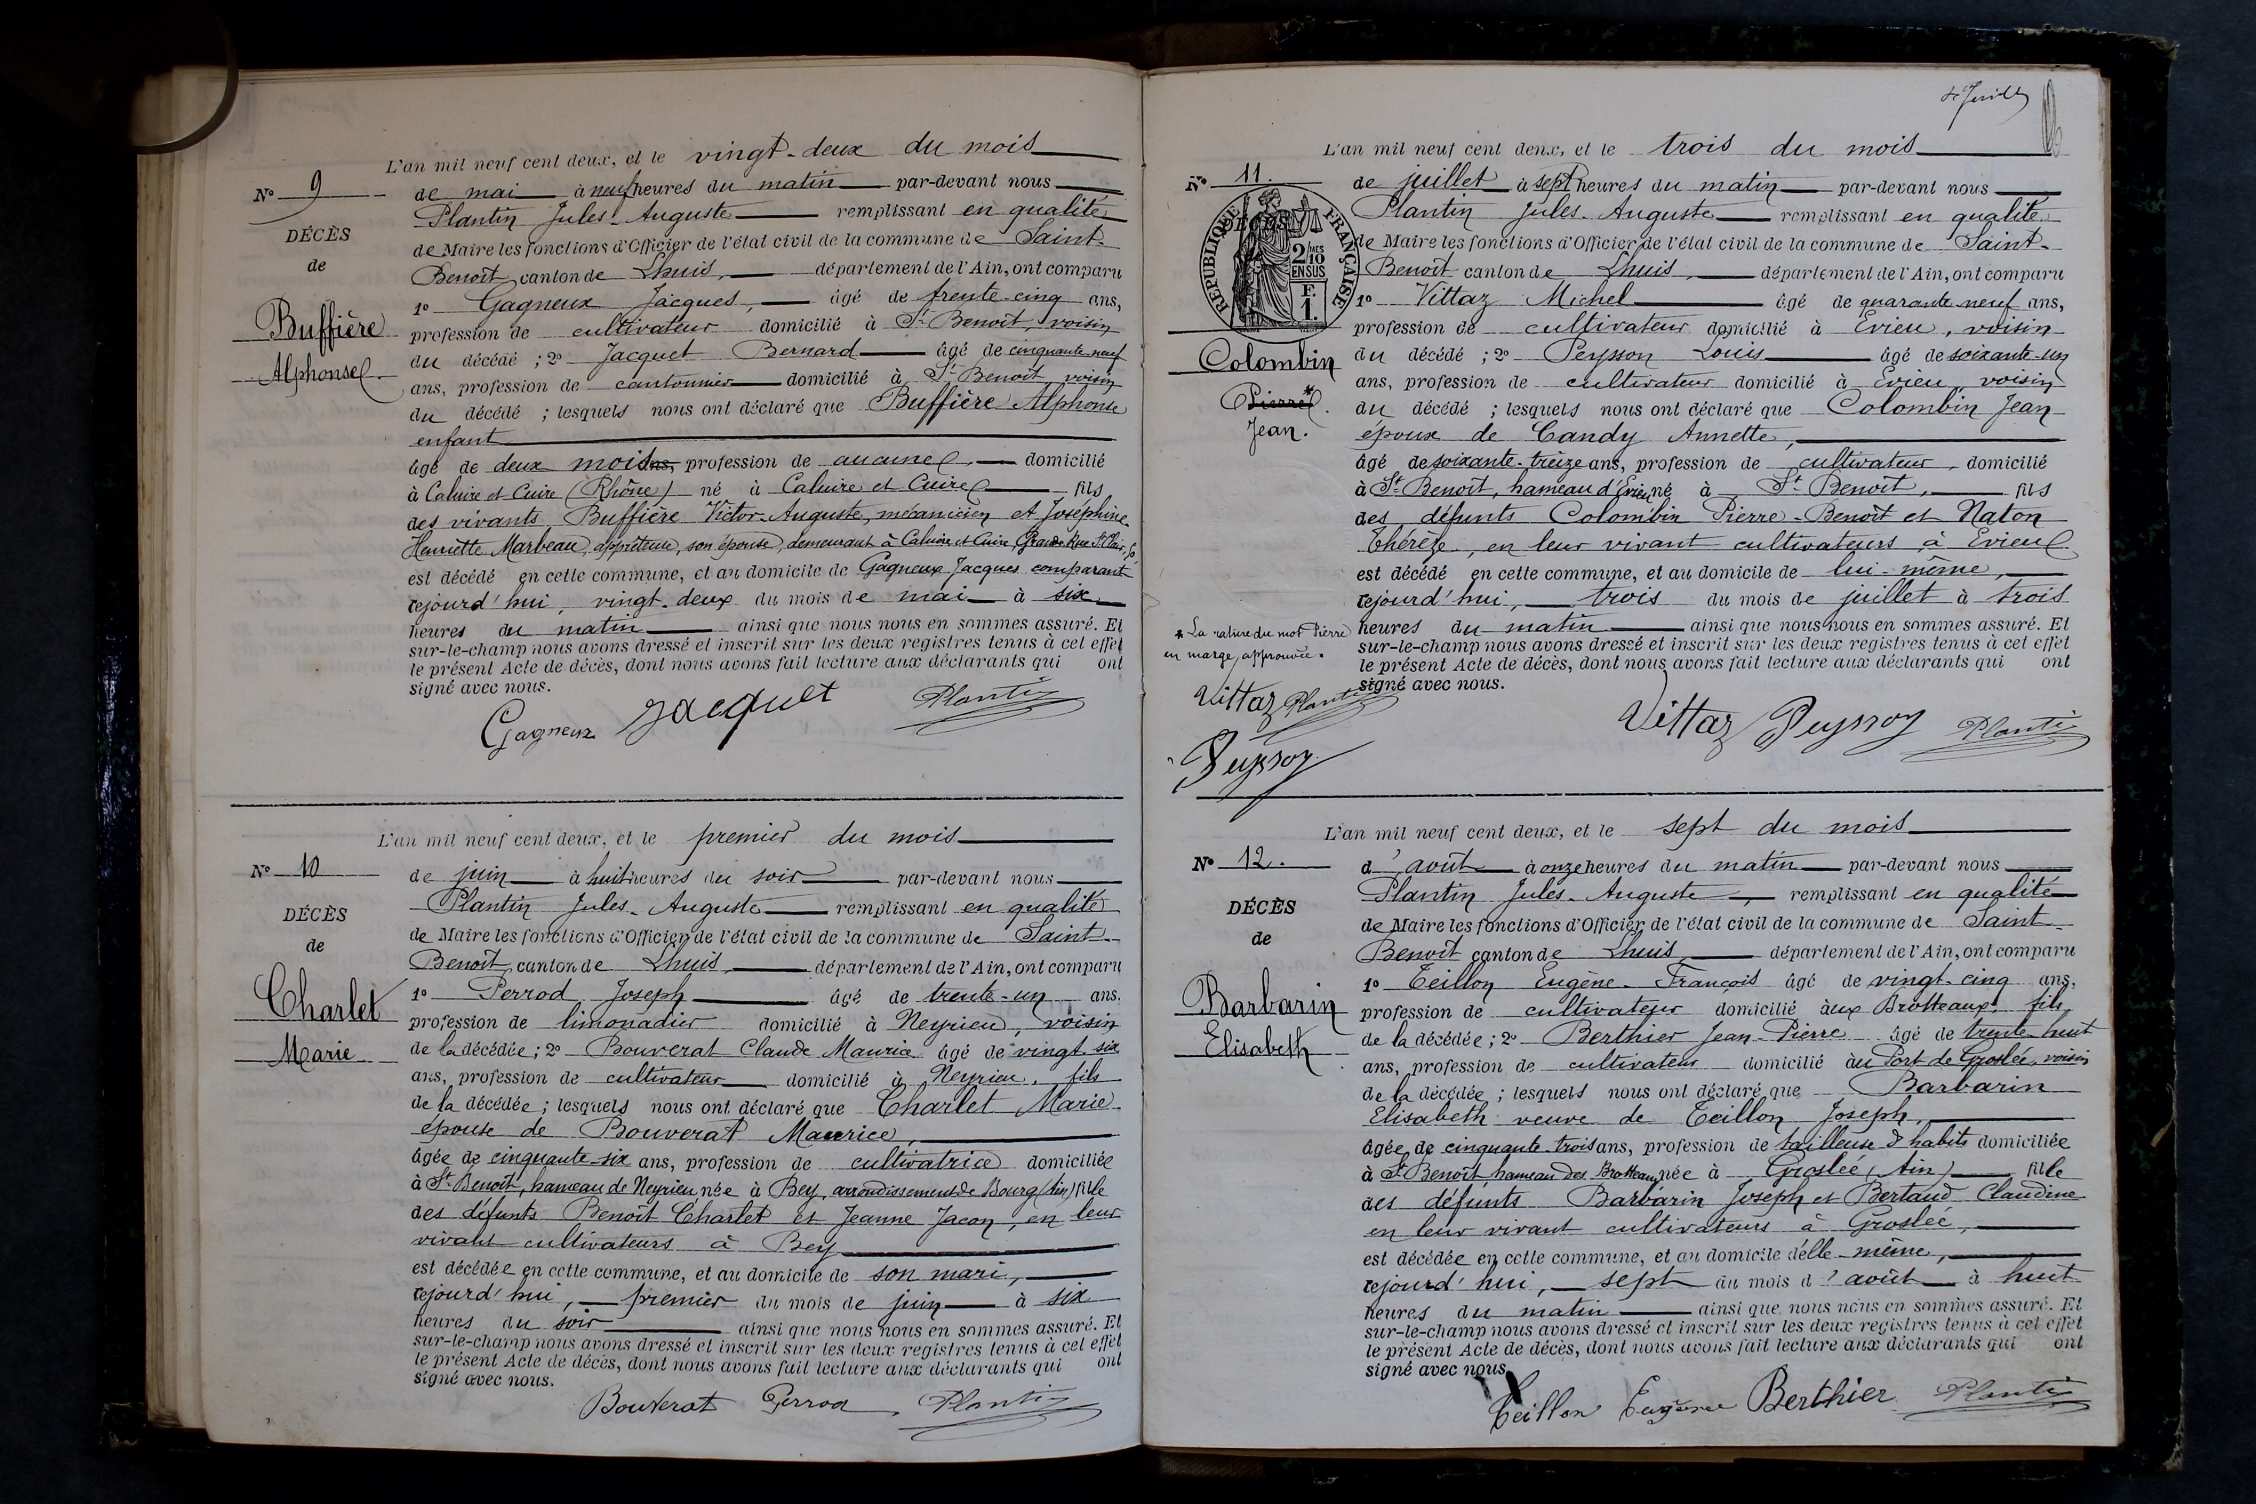 L'an mil neuf cent deux, et le vingt-deux du mois
N° 9
de mai à neuf heures du matin par-devant nous
Plantin Jules-Auguste remplissant en qualité
DÉCÈS
de Maire les fonctions d'Officier de l'état civil de la commune de Saint-
de
Benoît, canton de Lhuis, département de l'Ain, ont comparu
1° Gagneux Jacques, âgé de trente-cinq ans,
Buffière
profession de cultivateur domicilié à St Benoît, voisin
du décédé ; 2° Jacquet Bernard âgé de cinquante-neuf
Alphonse
ans, profession de cantonnier domicilié à St Benoît, voisin
du décédé ; lesquels nous ont déclaré que Buffière Alphonse
enfant
âgé de deux mois ans, profession de aucune, domicilié
à Caluire et Cuire (Rhône) né à Caluire et Cuire fils
des vivants, Buffière Victor-Auguste, mécanicien et Joséphine-
Henriette Marbeau, apprêteuse, son épouse, demeurant à Caluire et Cuire, Grande Rue St Clair,
est décédé en cette commune, et au domicile de Gagneux Jacques comparant
cejourd'hui, vingt-deux du mois de mai à six
heures du matin ainsi que nous nous en sommes assuré. Et
sur-le-champ nous avons dressé et inscrit sur les deux registres tenus à cet effet
le présent Acte de décès, dont nous avons fait lecture aux déclarants qui ont
signé avec nous.
Gagneux Jacquet Plantin
L'an mil neuf cent deux, et le premier du mois
N° 10
de juin à huit heures du soir par-devant nous
Plantin Jules-Auguste remplissant en qualité
DÉCÈS
de Maire les fonctions d'Officier de l'état civil de la commune de Saint-
de
Benoît, canton de Lhuis, département de l'Ain, ont comparu
Charlet
1° Perrod Joseph âgé de trente-un ans,
profession de limonadier domicilié à Neyrieu, voisin
Marie
de la décédée ; 2° Bouverat Claude Maurice âgé de vingt-six
ans, profession de cultivateur domicilié à Neyrieu, fils
de la décédée ; lesquels nous ont déclaré que Charlet Marie
épouse de Bouverat Maurice,
âgée de cinquante-six ans, profession de cultivatrice domiciliée
à St Benoît, hameau de Neyrieu, née à Bey, arrondissement de Bourg (Ain) fille
des défunts Benoît Charlet et Jeanne Jacon, en leur
vivant cultivateurs à Bey
est décédée en cette commune, et au domicile de son mari,
cejourd'hui, premier du mois de juin à six
heures du soir ainsi que nous nous en sommes assuré. Et
sur-le-champ nous avons dressé et inscrit sur les deux registres tenus à cet effet
le présent Acte de décès, dont nous avons fait lecture aux déclarants qui ont
signé avec nous.
Bouverat Perrod Plantin
L'an mil neuf cent deux, et le trois du mois
N° 11.
de juillet à sept heures du matin par-devant nous
Plantin Jules-Auguste remplissant en qualité
RÉPUBLIQUE FRANÇAISE
2 MES 10 EN SUS
F. 1.
DÉCÈS
de Maire les fonctions d'Officier de l'état civil de la commune de Saint-
Benoît canton de Lhuis, département de l'Ain, ont comparu
1° Vittaz Michel âgé de quarante-neuf ans,
profession de cultivateur domicilié à Evieu, voisin
Colombin
du décédé ; 2° Peysson Louis âgé de soixante-un
ans, profession de cultivateur domicilié à Evieu, voisin
Pierre*.
du décédé ; lesquels nous ont déclaré que Colombin Jean
Jean.
époux de Candy Annette,
âgé de soixante-treize ans, profession de cultivateur, domicilié
à St Benoît, hameau d'Evieu né à St Benoît, fils
des défunts Colombin Pierre-Benoît et Naton
Thérèze, en leur vivant cultivateurs à Evieu
est décédé en cette commune, et au domicile de lui-même,
cejourd'hui, trois du mois de juillet à trois
heures du matin ainsi que nous nous en sommes assuré. Et
* La rature du mot Pierre
en marge, approuvée.
sur-le-champ nous avons dressé et inscrit sur les deux registres tenus à cet effet
le présent Acte de décès, dont nous avons fait lecture aux déclarants qui ont
signé avec nous.
Vittaz Plantin
Peysson
Vittaz Peysson Plantin
L'an mil neuf cent deux, et le sept du mois
N° 12.
d'août à onze heures du matin par-devant nous
Plantin Jules-Auguste, remplissant en qualité
DÉCÈS
de Maire les fonctions d'Officier de l'état civil de la commune de Saint-
de
Benoît canton de Lhuis, département de l'Ain, ont comparu
1° Teillon Eugène-François âgé de vingt-cinq ans,
Barbarin
profession de cultivateur domicilié aux Brotteaux, fils
Elisabeth
de la décédée ; 2° Berthier Jean-Pierre âgé de trente-huit
ans, profession de cultivateur domicilié au Port de Groslée, voisin
de la décédée ; lesquels nous ont déclaré que Barbarin
Elisabeth veuve de Teillon Joseph,
âgée de cinquante-trois ans, profession de tailleuse d'habits domiciliée
à St Benoît hameau des Brotteaux née à Groslée (Ain) fille
des défunts Barbarin Joseph et Bertaud Claudine
en leur vivant cultivateurs à Groslée,
est décédée en cette commune, et au domicile d'elle-même,
cejourd'hui, sept du mois d'août à huit
heures du matin ainsi que nous nous en sommes assuré. Et
sur-le-champ nous avons dressé et inscrit sur les deux registres tenus à cet effet
le présent Acte de décès, dont nous avons fait lecture aux déclarants qui ont
signé avec nous
Teillon Eugène Berthier Plantin